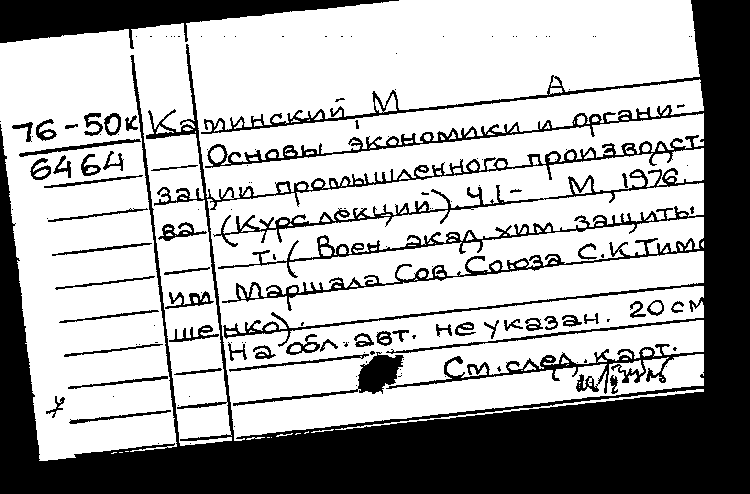 76-50к
6464
Каминский, М А
Основы экономики и органи-
зации промышленного производст-
ва (Курс лекций). Ч.I- М., 1976.
т. (Воен. акад. хим. защиты
им Маршала Сов. Союза С.К. Тимо
шенко).
На обл. авт. не указан. 20 см
См. след. карт.